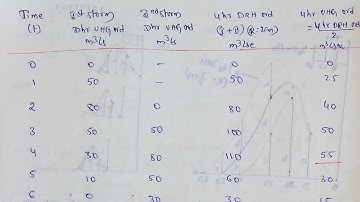 Time 1st storm 2nd storm 4hr DRH ord 4hr UHG ord
(t) Dhr UHG ord Dhr UHG ord (1+2) (R=2cm) = 4hr DRH ord
m³/s m³/s m³/sec 2
m³/sec
0 0 - 0 0
1 50 - 50 25
2 80 0 80 40
3 50 50 100 50
4 30 80 110 55
5 10 50 60 30
6 0 30 30 15